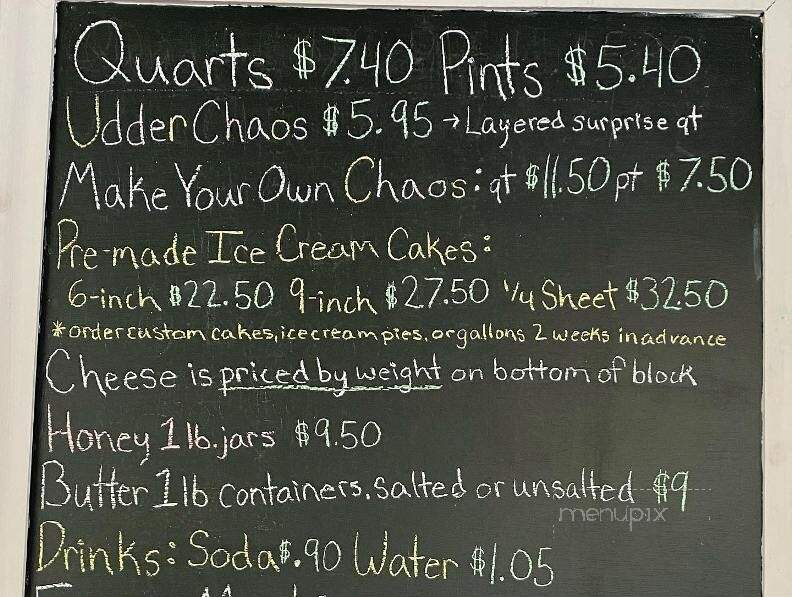 Quarts $7.40 Pints $5.40
Udder Chaos $5.95 → Layered surprise qt
Make Your Own Chaos: qt $11.50 pt $7.50
Pre-made Ice Cream Cakes:
6-inch $22.50 9-inch $27.50 1/4 Sheet $32.50
*order custom cakes, ice cream pies, or gallons 2 weeks in advance
Cheese is priced by weight on bottom of block
Honey 1 lb. jars $9.50
Butter 1 lb containers. Salted or unsalted $9
menupix
Drinks: Soda $.90 Water $1.05